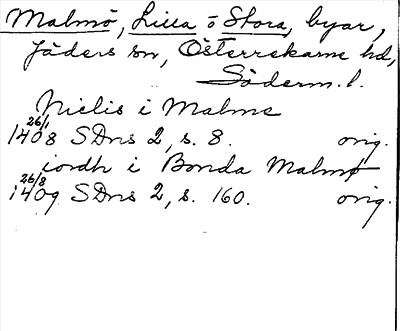 Malmö, Lilla o Stora, byar,
Jäders sn, Österrekarne hd,
Söderm. l.
Nielis i Malmø
26/1
1408 SDns 2, s. 8. orig.
iordh i Bonda Malmø
26/8
1409 SDns 2, s. 160. orig.